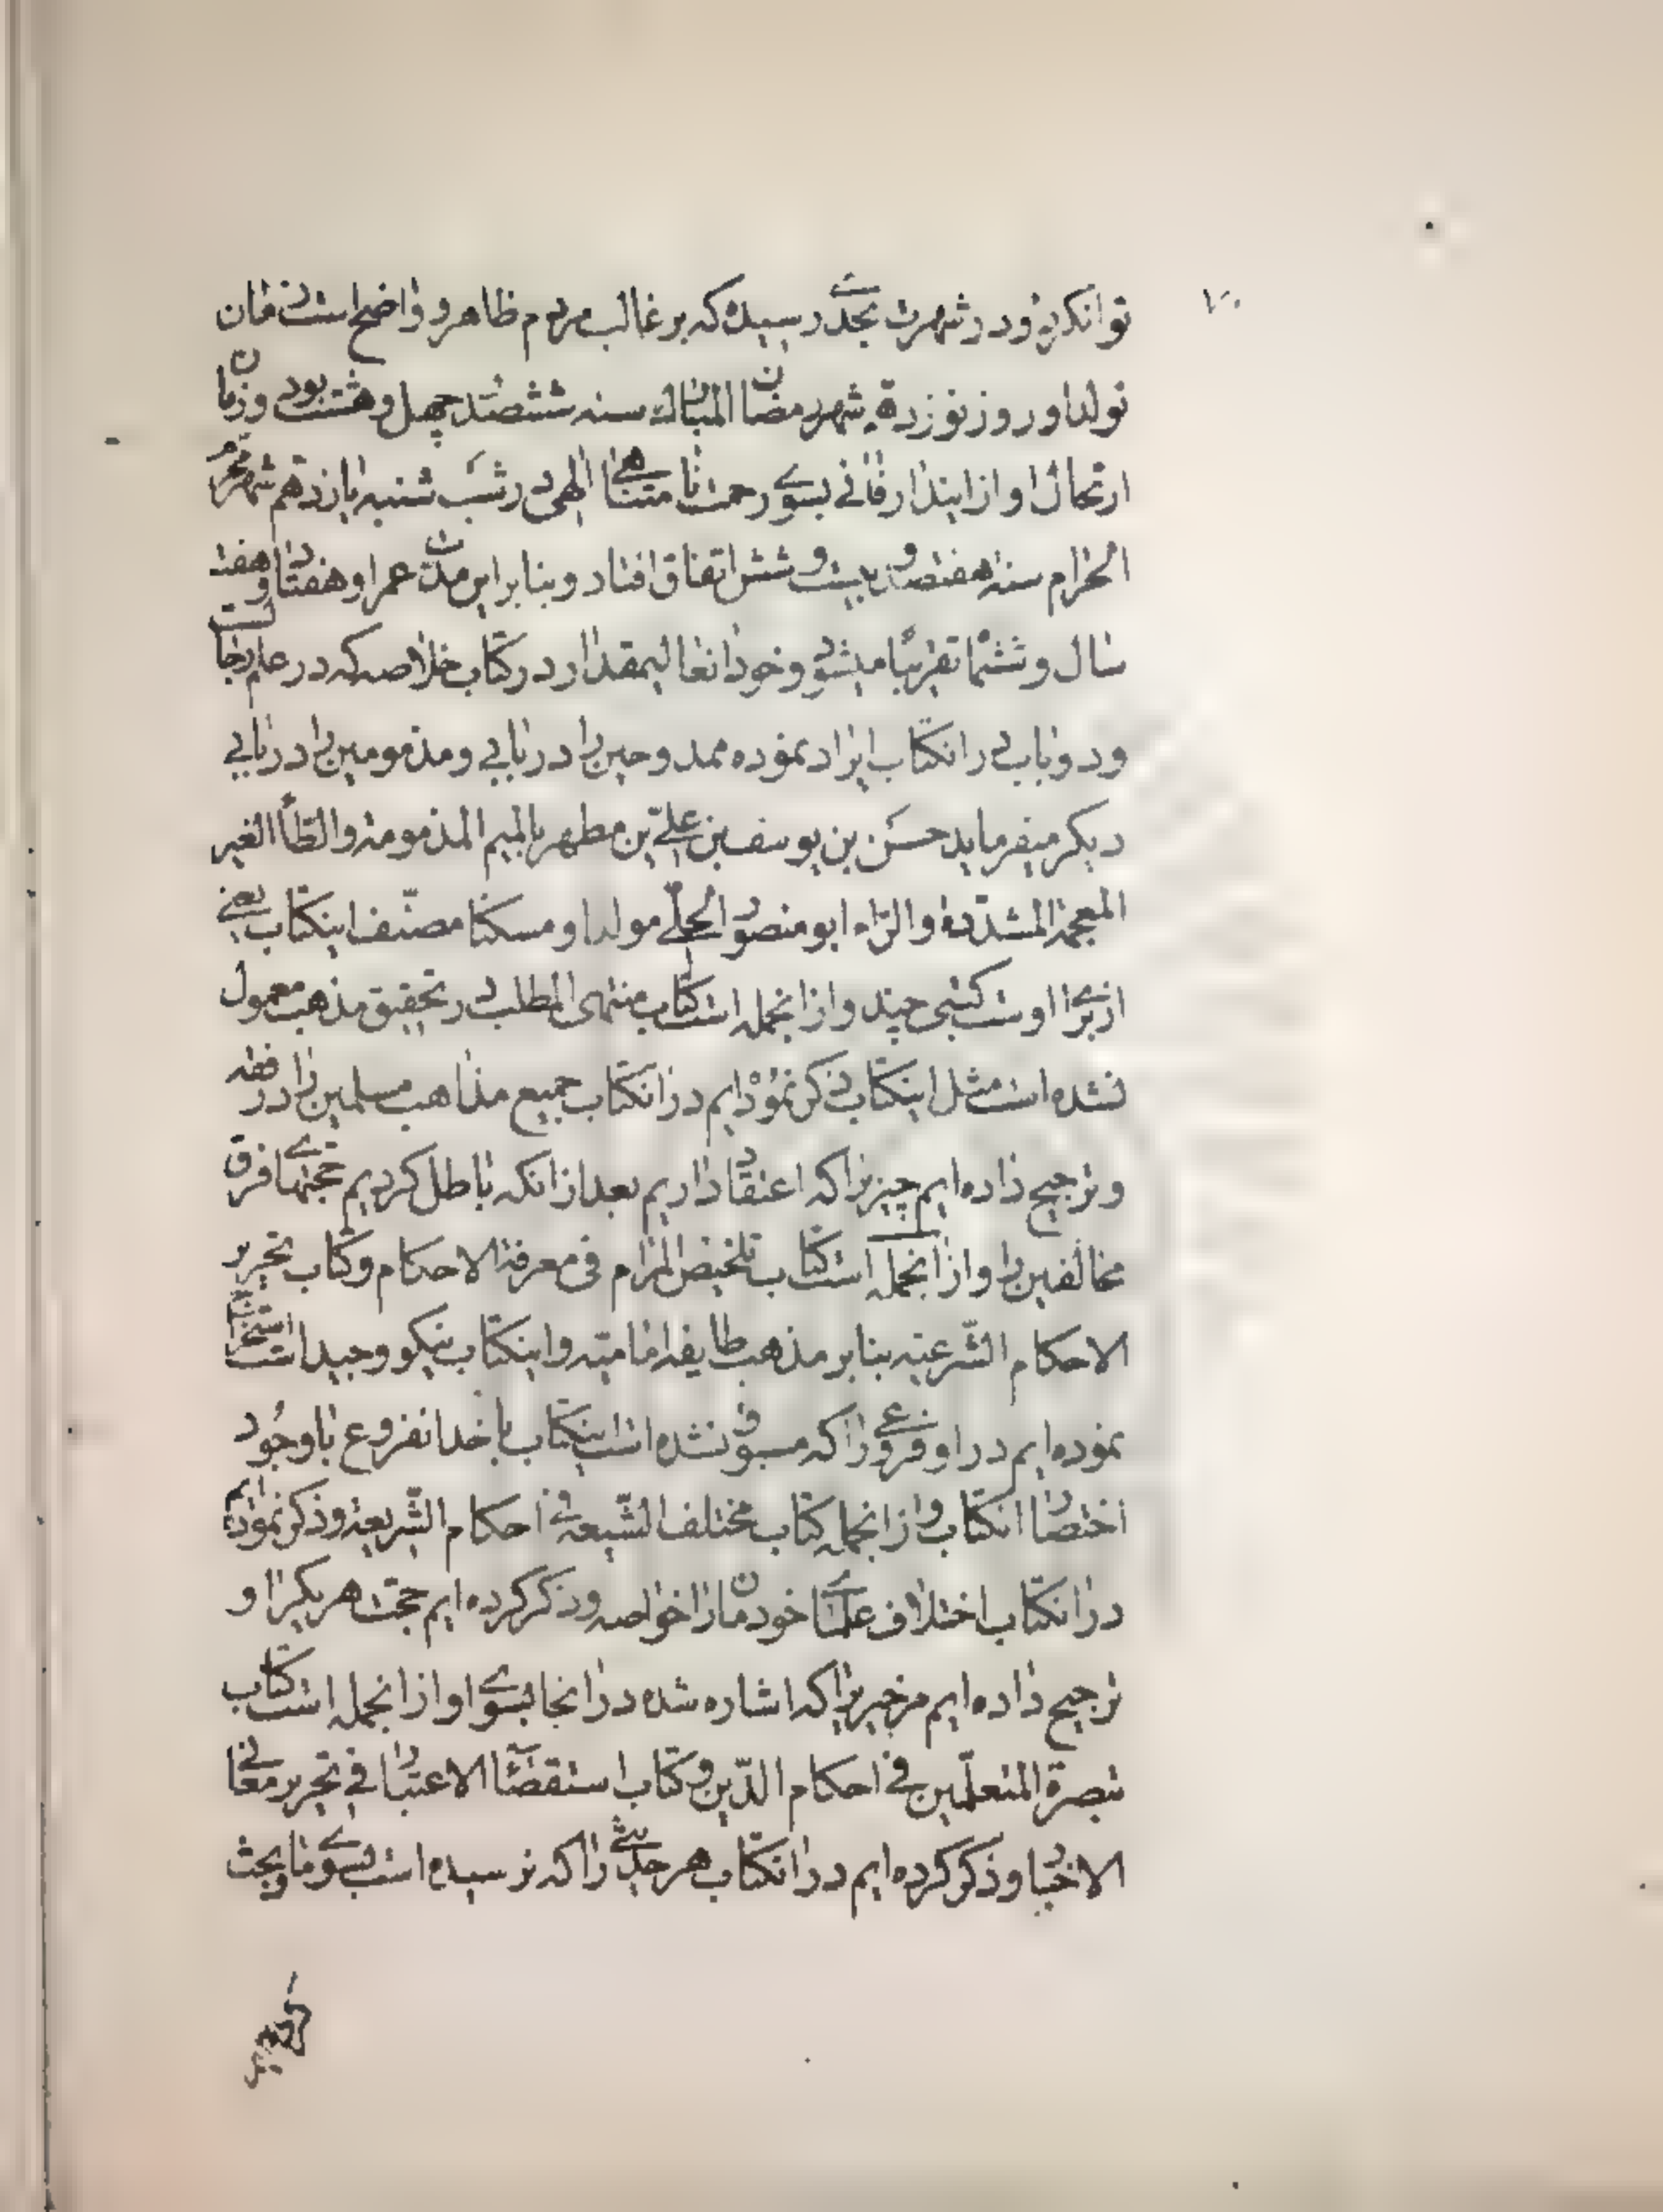 توانکرد و در شهرت بحدّی رسیده که بر غالب مردم ظاهر و واضح است زمان
تولد او روز نوزدهم شهر رمضان المبارک سنه ششصد چهل و هشت بوده و زمان
ارتحال او از ایندار فانی بسوی رحمت نامتناهی الهی در شب شنبه یازدهم شهر محرّم
الحرام سنه هفتصد و بیست و شش اتفاق افتاد و بنابراین مدّت عمر او هفتاد و هفت
سال و ششماه تقریبًا میشود و خود انعالیمقدار در کتاب خلاصه که در علم رجالست
و دو باب در انکتاب ایراد نموده ممدوحین را در بابی و مذمومین را در بابی
دیکر میفرماید حسَن بن یوسف بن علیّ بن مطهر بالمیم المذمومة والطّأ الغیر
المعجمة المشدّدة والرّاء ابو منصور الحلّی مولدا و مسکنا مصنّف اینکتاب یعنی
از برای اوست کتبی چند و از انجمله است کتاب منتهی المطلب در تحقیق مذهب معمول
نشده است مثل اینکتاب ذکر نموده‌ایم در انکتاب جمیع مذاهب مسلمین را در فقه
و ترجیح داده ایم چیزیرا که اعتقاد داریم بعد از انکه باطل کردیم حجتهای فرق
مخالفین را و از انجمله است کتاب تلخیص المرام فی معرفة الاحکام و کتاب تحریر
الاحکام الشّرعیّه بنابر مذهب طایفه امامیّه و اینکتاب نیکو و جید است استخراج
نموده ایم در او فروعی را که مسبوق نشده است اینکتاب باخد انفروع با وجُود
اختصار انکتاب و از انجمله کتاب مختلف الشّیعه فی احکام الشّریعة و ذکر نموده ایم
در انکتاب اختلاف علمای خودمانرا خواصه و ذکر کرده ایم حجت هریکرا و
ترجیح داده ایم مر خیریرا که اشاره شده در انجا بسوی او و از انجمله است کتاب
تبصرة المتعلّمین فی احکام الدّین و کتاب استقصاء الاعتبار فی تحریر معانی
الاخبار و ذکر کرده ایم در انکتاب هر حدیثی را که نرسیده است بسوی ما و بحث
کرده‌ایم